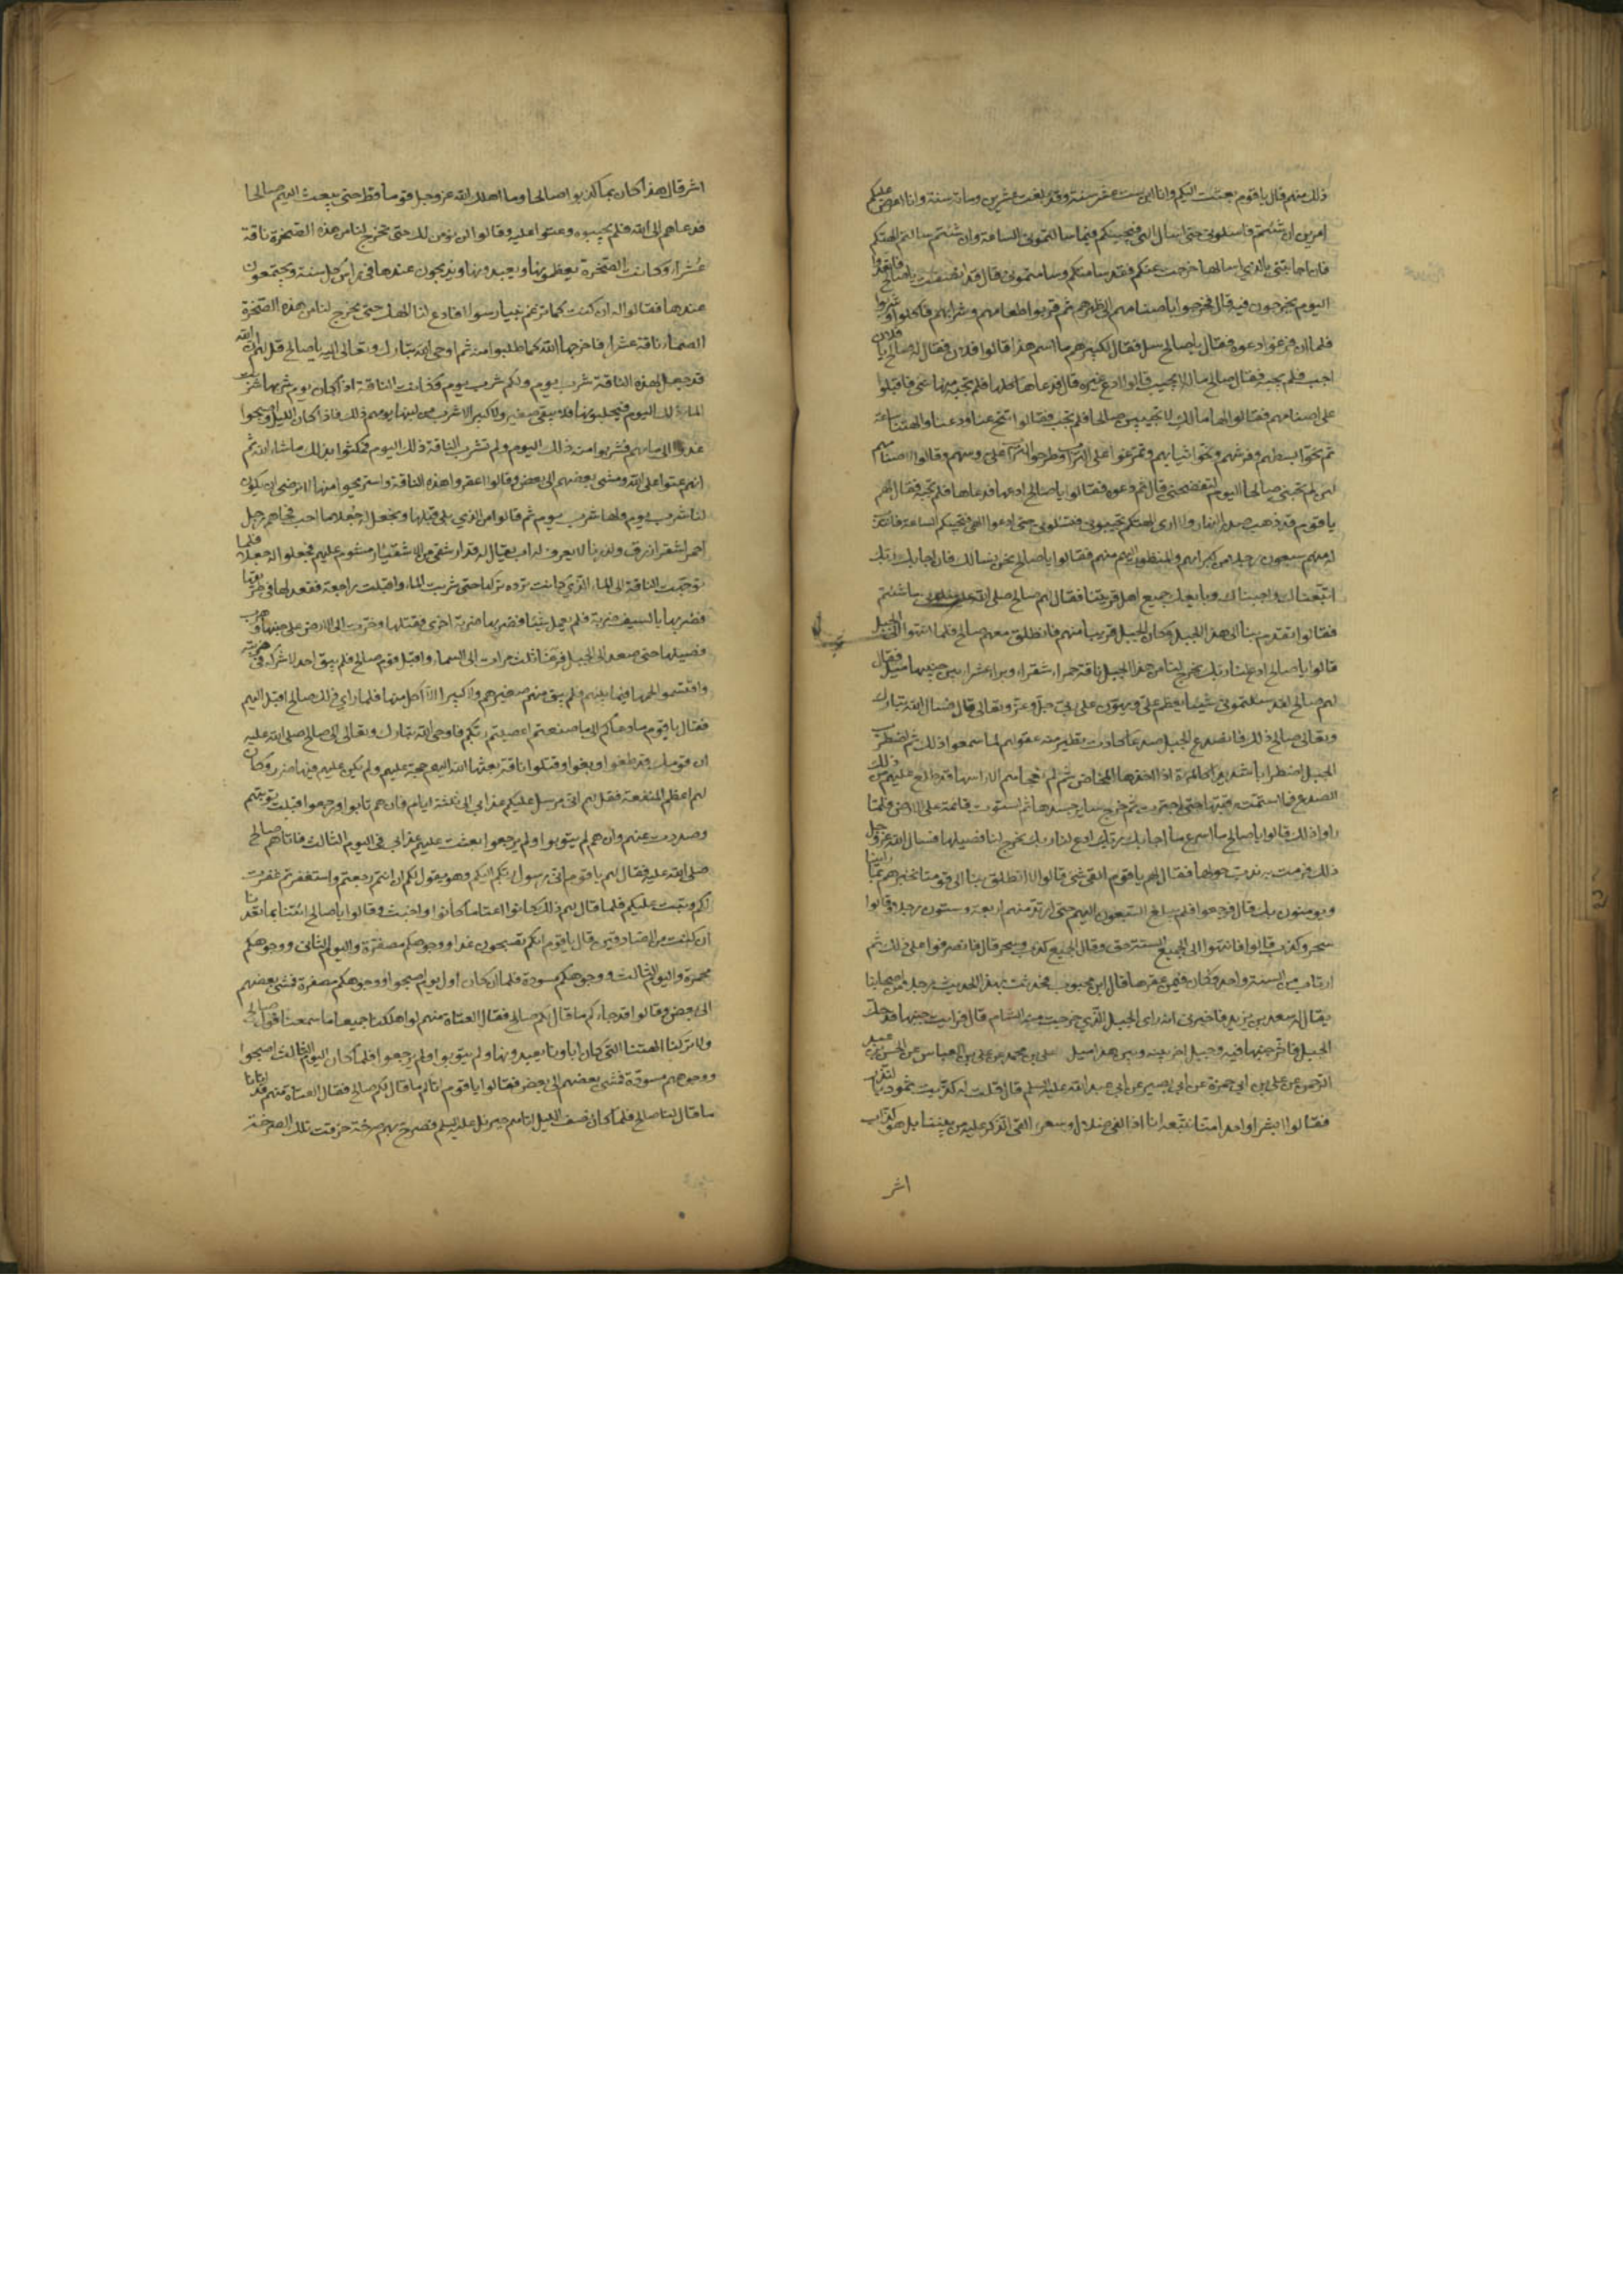 ذلك منهم قال يا قوم بعثت اليكم وانا ابن ست عشر سنة وقد بلغت عشرين ومائة سنة وانا اعرض عليكم
امرين ان شئتم فاسئلوني حتى اسال الهي فيجيبكم فيما سالتموني الساعة وان شئتم سالت الهتكم
فان اجابتني بالذي اسالها خرجت عنكم فقد سامتكم وسامتموني قال قد انصفت يا صالح فاتعدوا
اليوم يخرجون فيه قال فخرجوا باصنامهم الى ظهرهم ثم قربوا طعامهم وشرابهم فاكلوا وشربوا
فلما ان فرغوا دعوه فقالوا يا صالح سل فقال لكبيرهم ما اسم هذا قالوا فلان فقال له صالح يا فلان
اجب فلم يجبه فقال صالح ماله لا يجيب قالوا ادع غيره قال فدعاها كلها فلم يجبه منها شي فاقبلوا
على اصنامهم فقالوا لها مالك لا تجيبين صالحا فلم تجب فقالوا تنح عنا ودعنا والهتنا ساعة
ثم نحوا بسطهم وفرشهم ونحوا ثيابهم وتمرغوا على التراب وطرحوا التراب على روسهم وقالوا لاصنامهم
لئن لم تجبن صالحا اليوم لتفضحن قال ثم دعوه فقالوا يا صالح ادعها فدعاها فلم تجبه فقال لهم
يا قوم قد ذهب صدر النهار ولا ارى الهتكم تجيبوني فسئلوني حتى ادعوا الهي فيجيبكم الساعة فانتدب
له منهم سبعون رجلا من كبرائهم والمنظور اليهم منهم فقالوا يا صالح نحن نسالك فان اجابك ربك
اتبعناك واجبناك وبايعك جميع اهل قريتنا فقال لهم صالح صلى الله عليه سلوني ما شئتم
فقالوا تقدم بنا الى هذا الجبل وكان الجبل قريبا منهم فانطلق معهم صالح فلما انتهوا الى الجبل
قالوا يا صالح ادع لنا ربك يخرج لنا من هذا الجبل ناقة حمراء شقراء وبراء عشراء بين جنبيها ميل فقال
لهم صالح لقد سئلتموني شيئا يعظم علي ويهون على ربي جل وعز وتعالى قال فسال الله تبارك
وتعالى صالح ذلك فانصدع الجبل صدعا كادت تطير منه عقولهم لما سمعوا ذلك ثم اضطرب
الجبل اضطرابا شديدا كالمراة اذا اخذها المخاض ثم لم يفجاهم الا راسها قد طلع عليهم من ذلك
الصدع فما استتمت رقبتها حتى اجترت ثم خرج ساير جسدها ثم استوت قائمة على الارض فلما
راوا ذلك قالوا يا صالح ما اسرع ما اجابك ربك ادع لنا ربك يخرج لنا فصيلها فسال الله عز وجل
ذلك فرمت به فدب حولها فقال لهم يا قوم ابقي شي قالوا لا انطلق بنا الى قومنا نخبرهم بما راينا
ويومنون بك قال فرجعوا فلم يبلغ السبعون اليهم حتى ارتد منهم اربعة وستون رجلا وقالوا
سحر وكذب قالوا فانتهوا الى الجميع الستة حق وقال الجميع كذب وسحر قال فانصرفوا على ذلك ثم
ارتاب من الستة واحد وكان فيمن عقرها قال ابن محبوب فحدثت بهذا الحديث رجلا من اصحابنا
يقال له سعد بن يزيد فاخبرني انه راى الجبل الذي خرجت منه بالشام قال فرايت جنبها قد حك
الجبل فاثر جنبها فيه وجبل اخر بينه وبين هذا ميل علي بن محمد عن علي بن العباس عن الحسن بن عبد
الرحمن عن علي بن ابي حمزة عن ابي بصير عن ابي عبد الله عليه السلم قال قلت له كذبت ثمود بالنذر
فقالوا ابشرا واحدا منا نتبعه انا اذا لفي ضلال وسعر االقي الذكر عليه من بيننا بل هو كذاب
اشر
اشر قال هذا كان بما كذبوا صالحا وما اهلك الله عز وجل قوما قط حتى يبعث اليهم صالحا
فدعاهم الى الله فلم يجيبوه وعتوا عليه وقالوا لن نومن لك حتى تخرج لنا من هذه الصخرة ناقة
عشراء وكانت الصخرة يعظمونها ويعبدونها ويذبحون عندها في راس كل سنة ويجتمعون
عندها فقالوا له ان كنت كما تزعم نبيا رسولا فادع لنا الهك حتى يخرج لنا من هذه الصخرة
الصماء ناقة عشراء فاخرجها الله كما طلبوا منه ثم اوحى الله تبارك وتعالى اليه يا صالح قل لهم ان الله
قد جعل لهذه الناقة شرب يوم ولكم شرب يوم فكانت الناقة اذا كان يوم شربها شربت
الماء ذلك اليوم فيحلبونها فلا يبقى صغير ولا كبير الا شرب من لبنها يومهم ذلك فاذا كان الليل واصبحوا
غدوا الى مائهم فشربوا منه ذلك اليوم ولم تشرب الناقة ذلك اليوم فمكثوا بذلك ما شاء الله ثم
انهم عتوا على الله ومشى بعضهم الى بعض وقالوا اعقروا هذه الناقة واستريحوا منها لا نرضى ان يكون
لنا شرب يوم ولها شرب يوم ثم قالوا من الذي يلي قتلها ونجعل له جعلا ما احب فجاءهم رجل
احمر اشقر ازرق ولد زنا لا يعرف له اب يقال له قدار شقي من الاشقياء مشوم عليهم فجعلوا له جعلا فلما
توجهت الناقة الى الماء الذي كانت ترده تركها حتى شربت الماء واقبلت راجعة فقعد لها في طريقها
فضربها بالسيف ضربة فلم يعمل شيئا فضربها ضربة اخرى فقتلها وخرت الى الارض على جنبها وهرب
فصيلها حتى صعد الى الجبل فرغا ثلث مرات الى السماء واقبل قوم صالح فلم يبق احد الا شركه في ضربته
واقتسموا لحمها فيما بينهم فلم يبق منهم صغير ولا كبير الا اكل منها فلما راى ذلك صالح اقبل اليهم
فقال يا قوم ما دعاكم الى ما صنعتم اعصيتم ربكم فاوحى الله تبارك وتعالى الى صالح صلى الله عليه
ان قومك قد طغوا وبغوا وقتلوا ناقة بعثها الله اليهم حجة عليهم ولم يكن عليهم فيها ضرر وكان
لهم اعظم المنفعة فقل لهم اني مرسل عليكم عذابي الى ثلثة ايام فان هم تابوا ورجعوا قبلت توبتهم
وصددت عنهم وان هم لم يتوبوا ولم يرجعوا بعثت عليهم عذابي في اليوم الثالث فاتاهم صالح
صلى الله عليه فقال لهم يا قوم اني رسول ربكم اليكم وهو يقول لكم ان انتم رجعتم واستغفرتم غفرت
لكم وتبت عليكم فلما قال لهم ذلك كانوا اعتا ما كانوا واخبث وقالوا يا صالح ائتنا بما تعدنا
ان كنت من الصادقين قال يا قوم انكم تصبحون غدا ووجوهكم مصفرة واليوم الثاني ووجوهكم
محمرة واليوم الثالث ووجوهكم مسودة فلما ان كان اول يوم اصبحوا ووجوهكم مصفرة فمشى بعضهم
الى بعض وقالوا قد جاءكم ما قال لكم صالح فقال العتاة منهم لو اهلكنا جميعا ما سمعنا قول صالح
ولا تركنا الهتنا التي كان اباونا يعبدونها ولم يتوبوا ولم يرجعوا فلما كان اليوم الثالث اصبحوا
ووجوههم مسودة فمشى بعضهم الى بعض فقالوا يا قوم اتاكم ما قال لكم صالح فقال العتاة منهم قد اتانا
ما قال لنا صالح فلما كان نصف الليل اتاهم جبرئيل عليه السلم فصرخ بهم صرخة خرقت تلك الصرخة